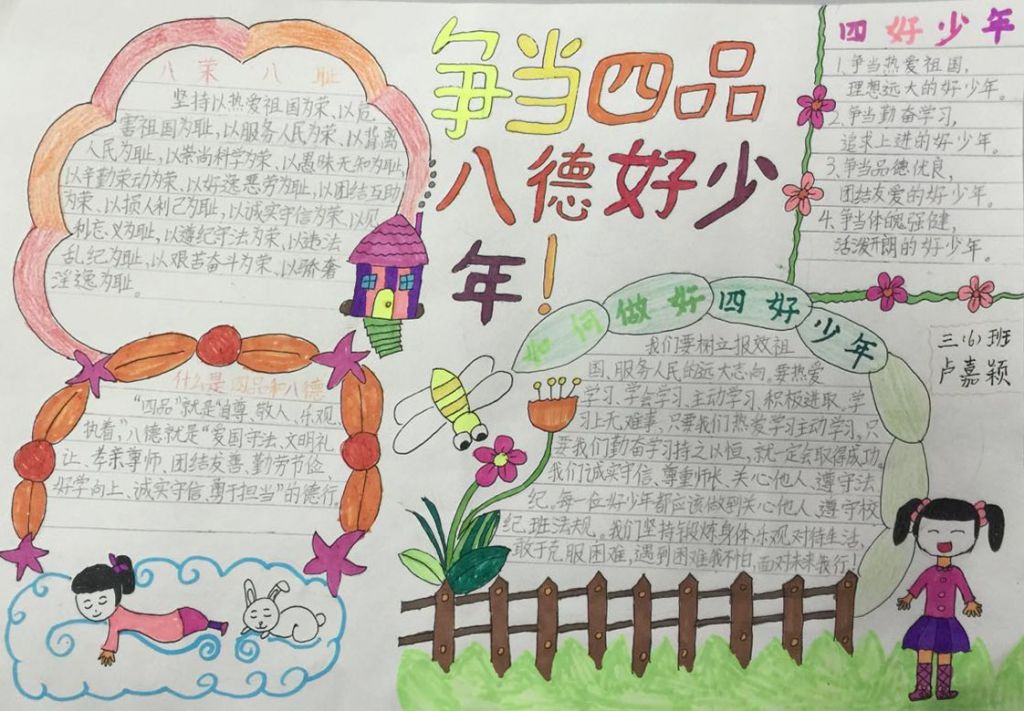 争当四品
八德好少
年！
八荣八耻
坚持以热爱祖国为荣、以危
害祖国为耻，以服务人民为荣、以背离
人民为耻，以崇尚科学为荣、以愚昧无知为耻，
以辛勤劳动为荣、以好逸恶劳为耻，以团结互助
为荣、以损人利己为耻，以诚实守信为荣、以见
利忘义为耻，以遵纪守法为荣、以违法
乱纪为耻，以艰苦奋斗为荣、以骄奢
淫逸为耻。
四好少年
1、争当热爱祖国，
理想远大的好少年。
2、争当勤奋学习，
追求上进的好少年。
3、争当品德优良，
团结友爱的好少年。
4、争当体魄强健，
活泼开朗的好少年。
三（6）班
卢嘉颖
什么是四品和八德
“四品”就是“自尊、敬人、乐观、
执着”，八德就是“爱国守法、文明礼
让、孝亲尊师、团结友善、勤劳节俭、
好学向上、诚实守信、勇于担当”的德行。
如何做好四好少年
我们要树立报效祖
国、服务人民的远大志向。要热爱
学习、学会学习、主动学习、积极进取、学
习上无难事，只要我们热爱学习主动学习，只
要我们勤奋学习持之以恒，就一定会取得成功。
我们诚实守信、尊重师长、关心他人、遵守法
纪。每一位好少年都应该做到关心他人、遵守校
纪、班法规。我们坚持锻炼身体、乐观对待生活、
敢于克服困难，遇到困难我不怕，面对未来我行！